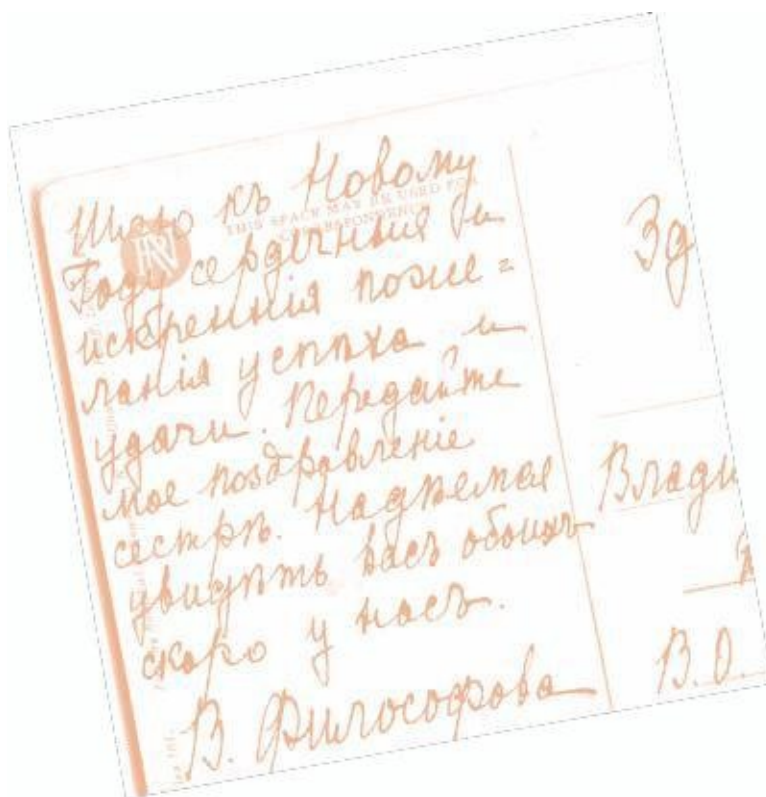 Шлю къ Новому
THIS SPACE MAY BE USED FOR
CORRESPONDENCE
Году сердечныя и
искреннія поже=
ланія успѣха и
удачи. Передайте
мое поздравленіе
сестрѣ. Надѣемся
увидѣть васъ обоихъ
скоро у насъ.
В. Философова
Зд
Влади
В.О.